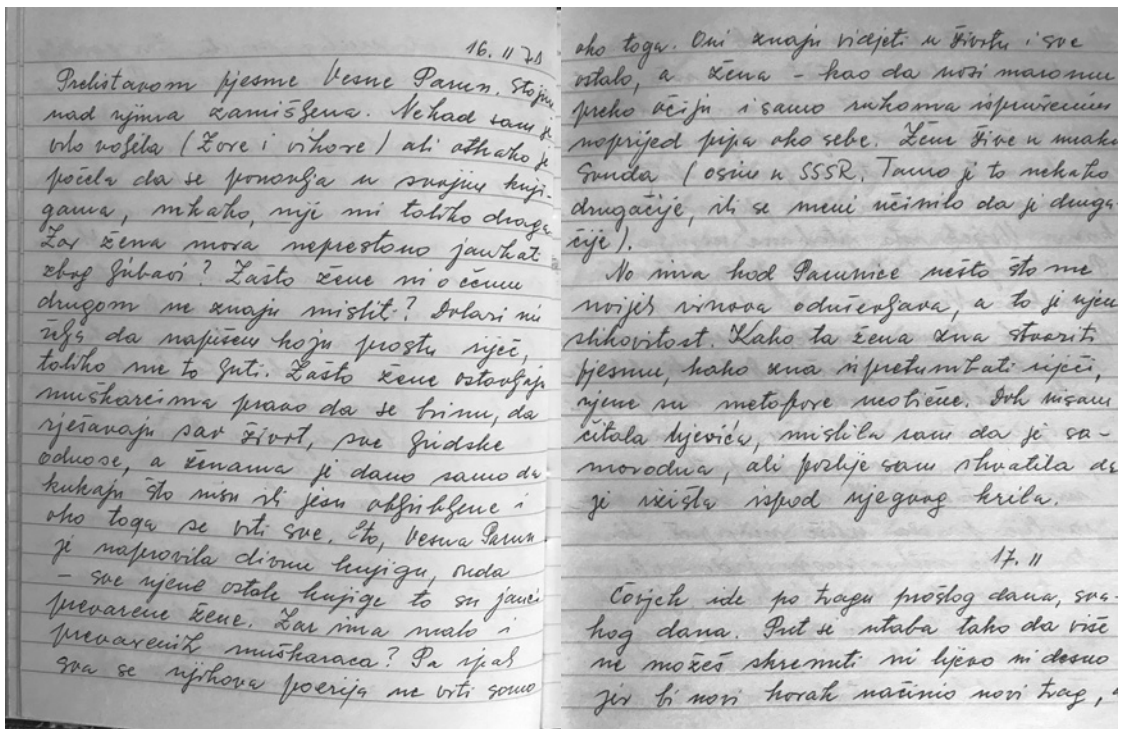 16. II 71
Prelistavam pjesme Vesne Parun. Stojim
nad njima zamišljena. Nekad sam je
vrlo voljela (Zore i vihore) ali otkako je
počela da se ponavlja u svojim knji-
gama, nekako, nije mi toliko draga
Zar žena mora neprestano jaukat
zbog ljubavi? Zašto žene ni o čemu
drugom ne znaju mislit? Dolazi mi
želja da napišem koju prostu riječ,
toliko me to ljuti. Zašto žene ostavljaju
muškarcima pravo da se brinu, da
rješavaju sav život, sve ljudske
odnose, a ženama je dano samo da
kukaju što nisu ili jesu obljubljene i
oko toga se vrti sve. Eto, Vesna Parun
je napravila divnu knjigu, onda
– sve njene ostale knjige to su jauci
prevarene žene. Zar ima malo i
prevarenih muškaraca? Pa ipak
sva se njihova poezija ne vrti samo
oko toga. Oni znaju vidjeti u životu i sve
ostalo, a žena – kao da nosi maramu
preko očiju i samo rukama ispruženim
naprijed pipa oko sebe. Žene žive u mraku
svuda (osim u SSSR. Tamo je to nekako
drugačije, ili se meni učinilo da je druga-
čije).
No ima kod Parunice nešto što me
uvijek iznova oduševljava, a to je njena
slikovitost. Kako ta žena zna stvoriti
pjesmu, kako zna ispretumbati riječi,
njene su metafore neobične. Dok nisam
čitala Ujevića, mislila sam da je sa-
morodna, ali poslije sam shvatila da
je izišla ispod njegovog krila.
17. II
Čovjek ide po tragu prošlog dana, sva-
kog dana. Put se utaba tako da više
ne možeš skrenuti ni lijevo ni desno
jer bi novi korak načinio novi trag,